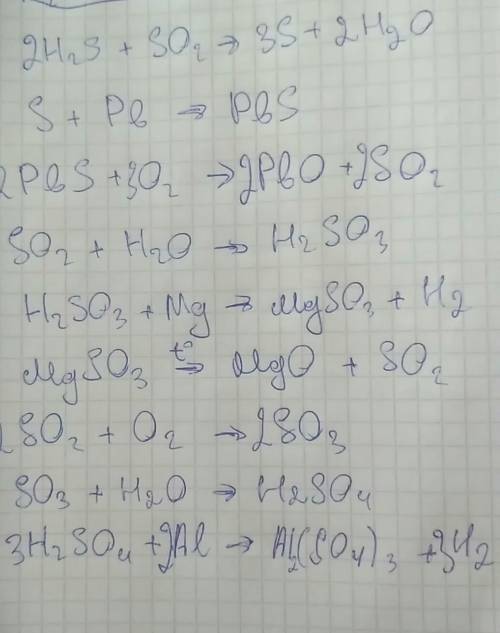 2H₂S + SO₂ → 3S + 2H₂O
S + Pb → PbS
2PbS + 3O₂ → 2PbO + 2SO₂
SO₂ + H₂O → H₂SO₃
H₂SO₃ + Mg → MgSO₃ + H₂
MgSO₃ t° → MgO + SO₂
2SO₂ + O₂ → 2SO₃
SO₃ + H₂O → H₂SO₄
3H₂SO₄ + 2Al → Al₂(SO₄)₃ + 3H₂